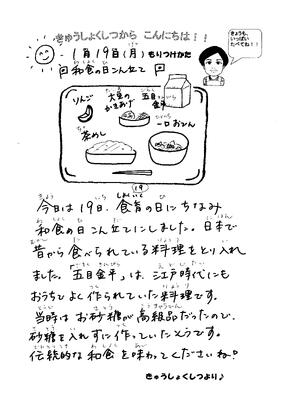 きゅうしょくしつから こんにちは！！
きょうも、
いっぱい
たべてね！！
1月19日(月) もりつけかた
和食の日こん立て
りんご
大豆の
かきあげ
五目
金平
茶めし
一口おでん
19
今日は19日、食育の日にちなみ
和食の日こん立てにしました。日本で
昔から食べられている料理をとり入れ
ました。「五目金平」は、江戸時代にも
おうちでよく作られていた料理です。
当時はお砂糖が高級品だったので、
砂糖を入れずに作っていたそうです。
伝統的な和食を味わってくださいね。
きゅうしょくしつより♪